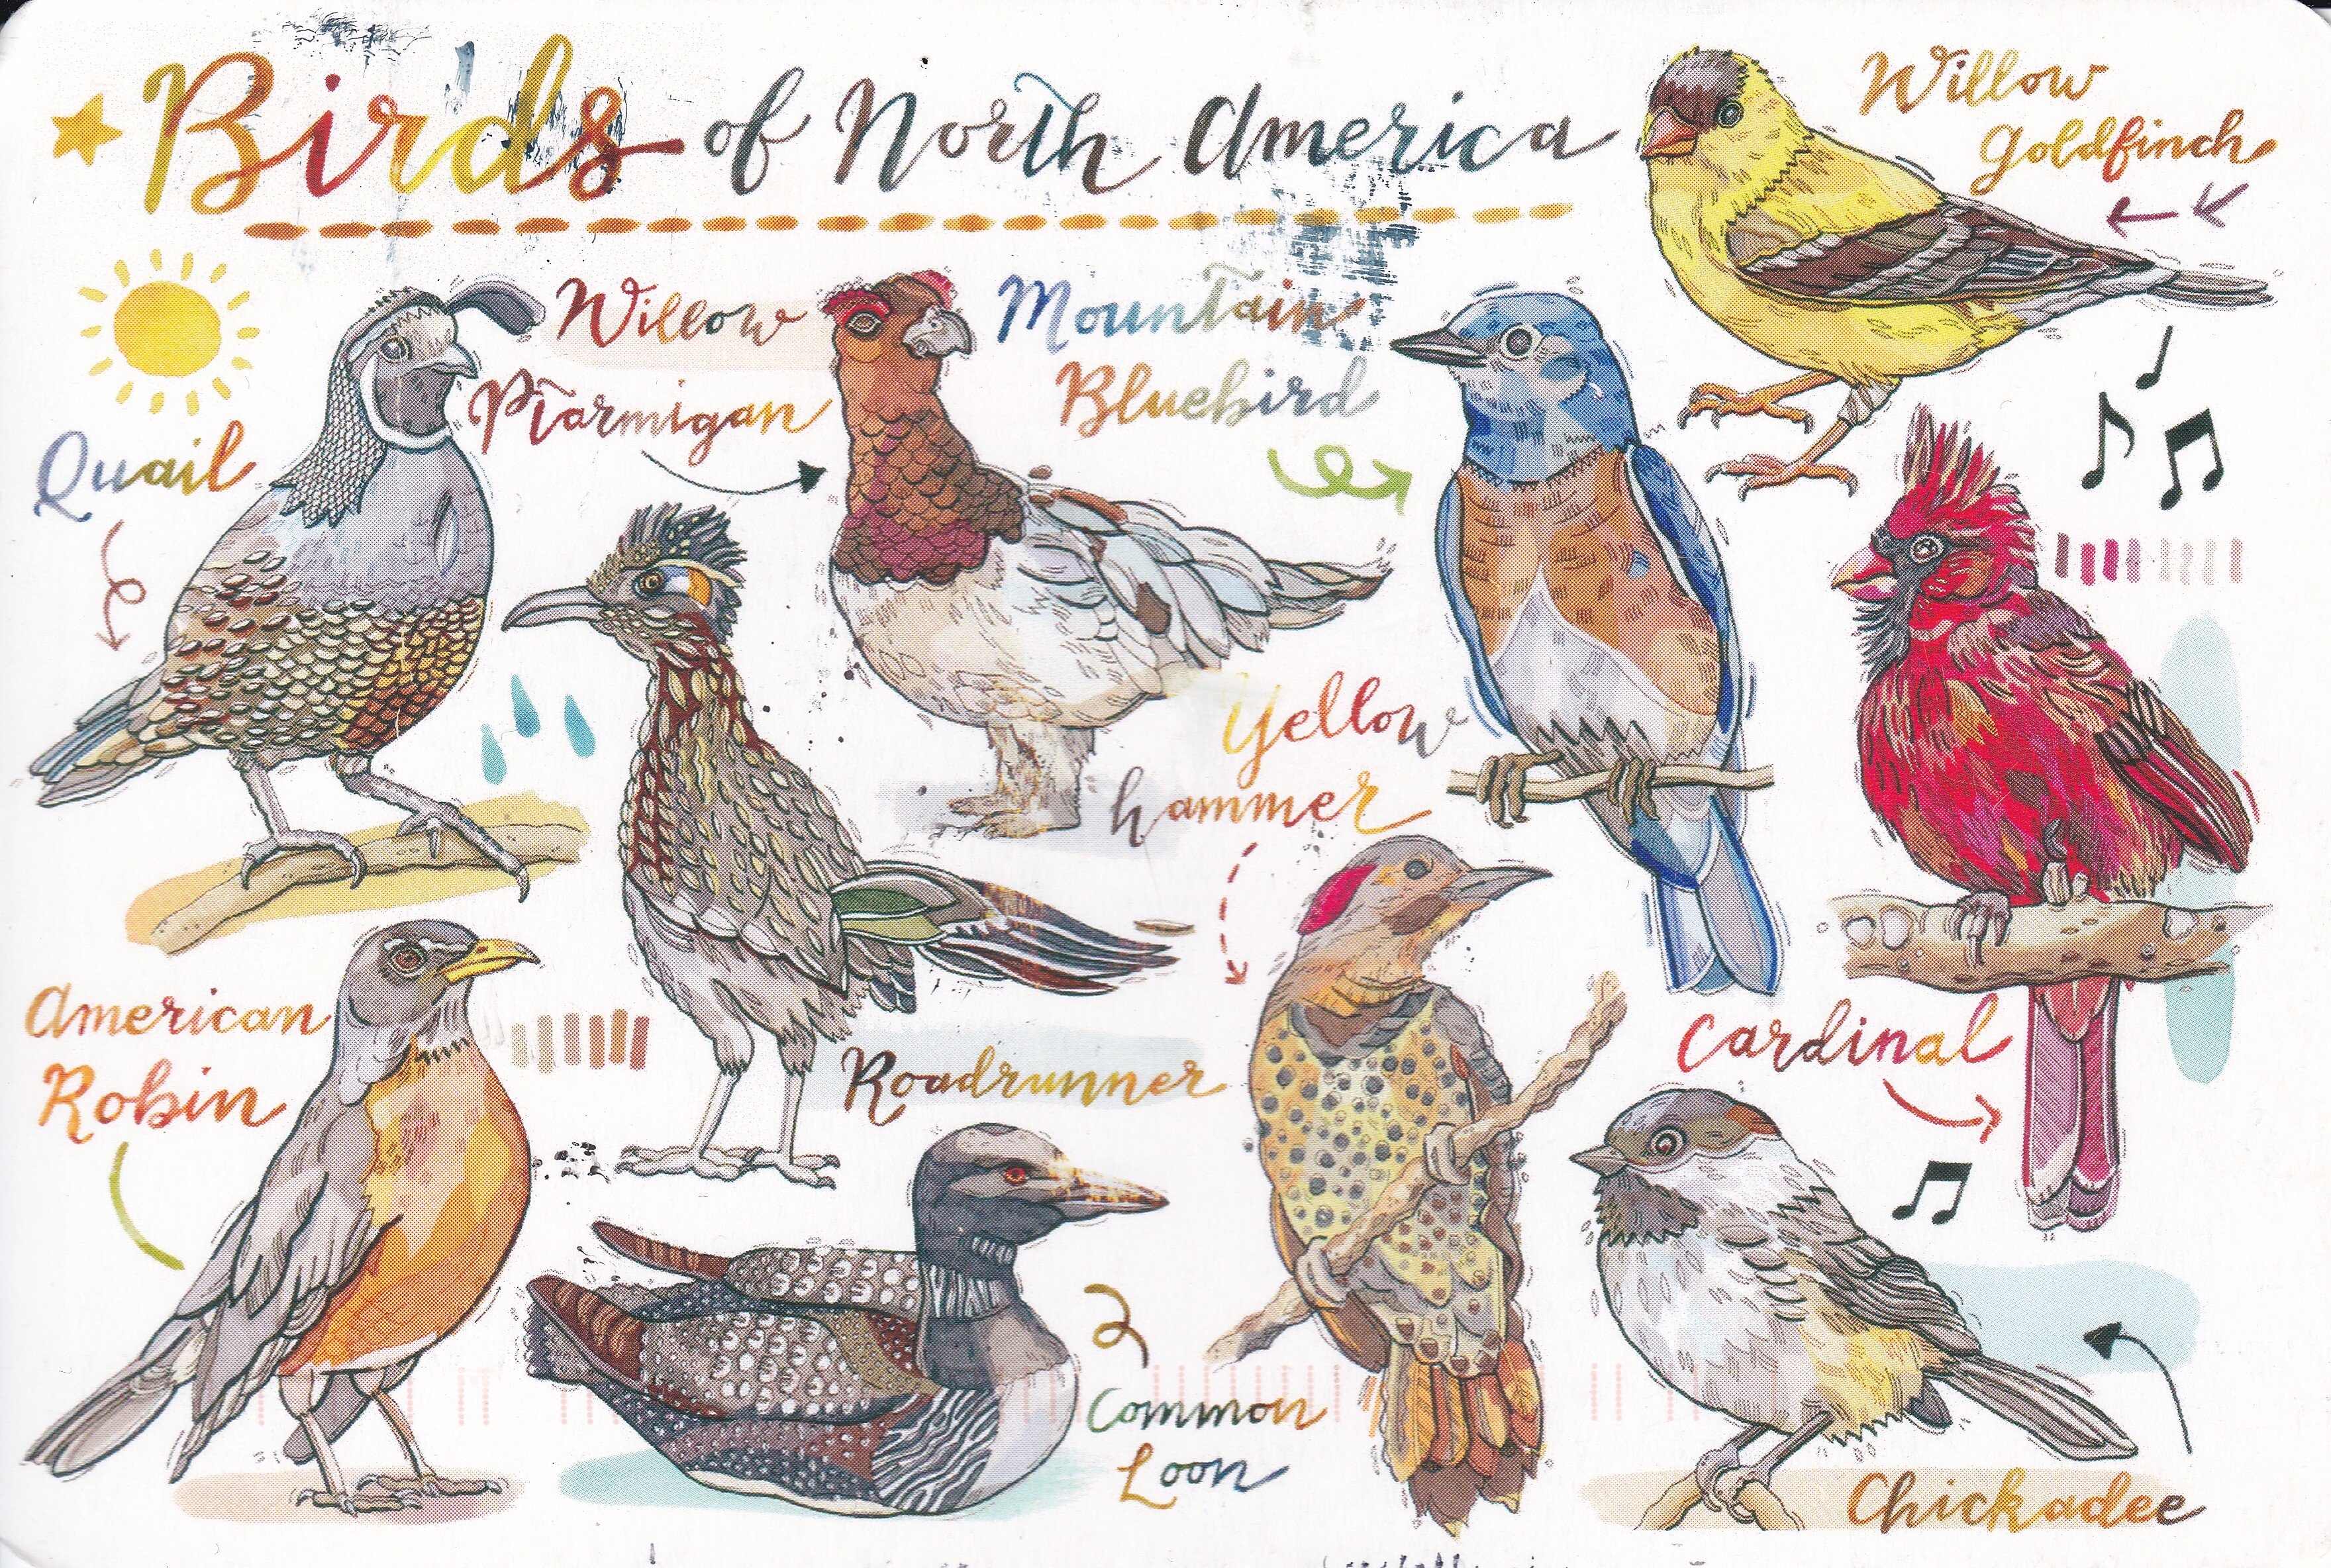 Birds of North America
Willow
Goldfinch
Quail
Willow
Ptarmigan
Mountain
Bluebird
Yellow
hammer
American
Robin
Roadrunner
Cardinal
Common
Loon
Chickadee